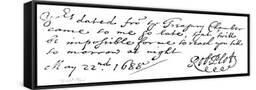 dated fro' ye Treasury Chamber
came to me so late, yt twill
be impossible for me to reach you till
to morrow at night
May 22nd. 1688 Rob: Plot